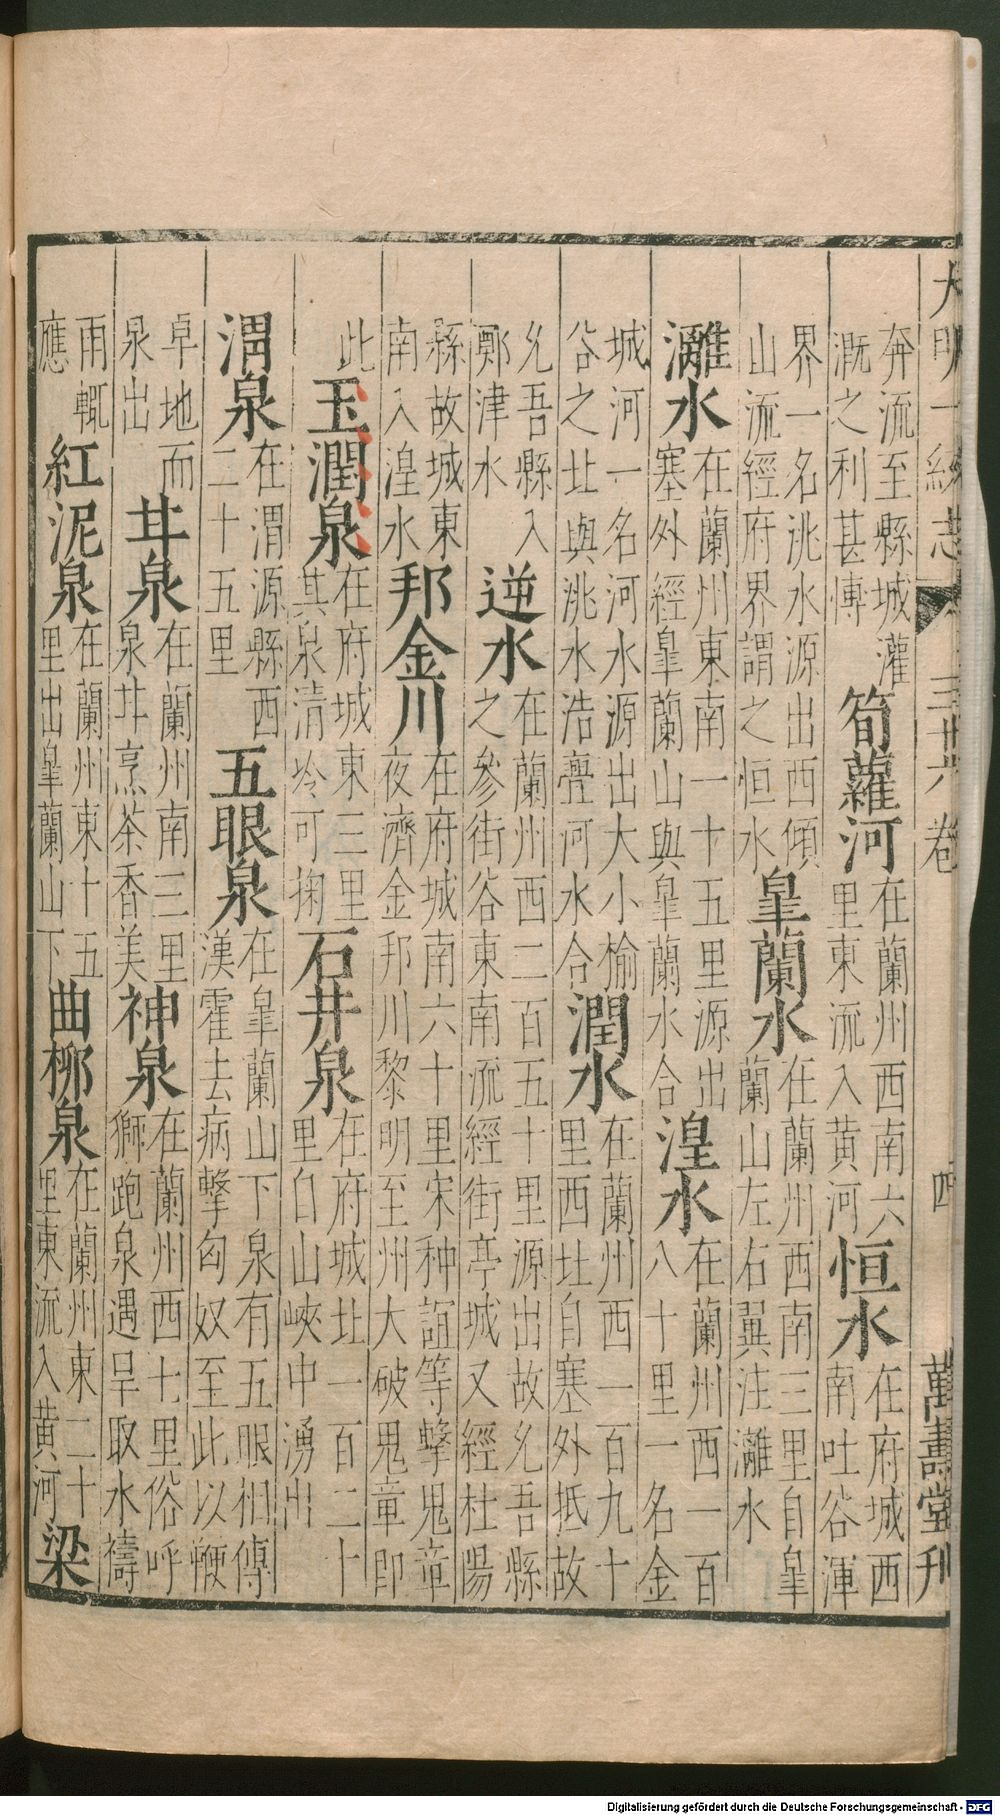 大明一統志 三十六卷 四 萬壽堂刊
奔流至縣城灌溉之利甚博 筍蘿河 在蘭州西南六里東流入黄河 恒水 在府城西南吐谷渾
界一名洮水源出西傾山流經府界謂之恒水 皐蘭水 在蘭州西南三里自皐蘭山左右翼注灕水
灕水 在蘭州東南一十五里源出塞外經皐蘭山與皐蘭水合 湟水 在蘭州西一百八十里一名金
城河一名河水源出大小榆谷之北與洮水浩亹河水合 潤水 在蘭州西一百九十里西北自塞外抵故
允吾縣入鄭津水 逆水 在蘭州西二百五十里源出故允吾縣之參街谷東南流經街亭城又經杜陽
縣故城東南入湟水 邦金川 在府城南六十里宋种誼等擊鬼章夜濟金邦川黎明至州大破鬼章即
此 玉潤泉 在府城東三里其泉清冷可掬 石井泉 在府城北一百二十里白山峽中湧出
渭泉 在渭源縣西二十五里 五眼泉 在皐蘭山下泉有五眼相傳漢霍去病擊匈奴至此以鞭
卓地而泉出 甘泉 在蘭州南三里泉甘烹茶香美 神泉 在蘭州西七里俗呼獅跑泉遇旱取水禱
雨輒應 紅泥泉 在蘭州東十五里出皐蘭山下 曲柳泉 在蘭州東二十里東流入黄河 梁
Digitalisierung gefördert durch die Deutsche Forschungsgemeinschaft - DFG